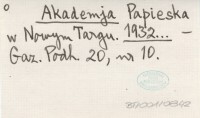 Akademja Papieska
w Nowym Targu. 1932... —
Gaz. Podh. 20, nr 10.